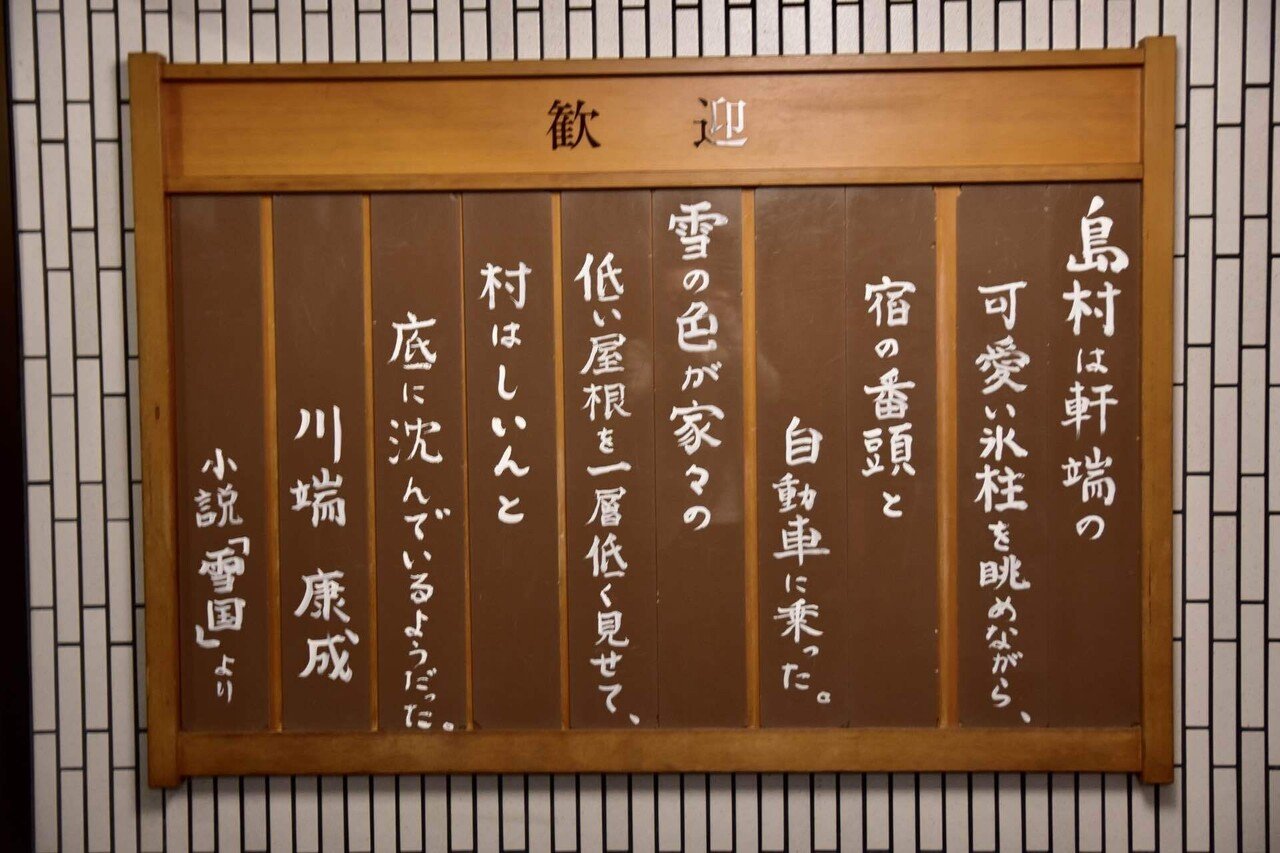 歓迎
島村は軒端の
可愛い氷柱を眺めながら、
宿の番頭と
自動車に乗った。
雪の色が家々の
低い屋根を一層低く見せて、
村はしいんと
底に沈んでいるようだった。
川端 康成
小説「雪国」より